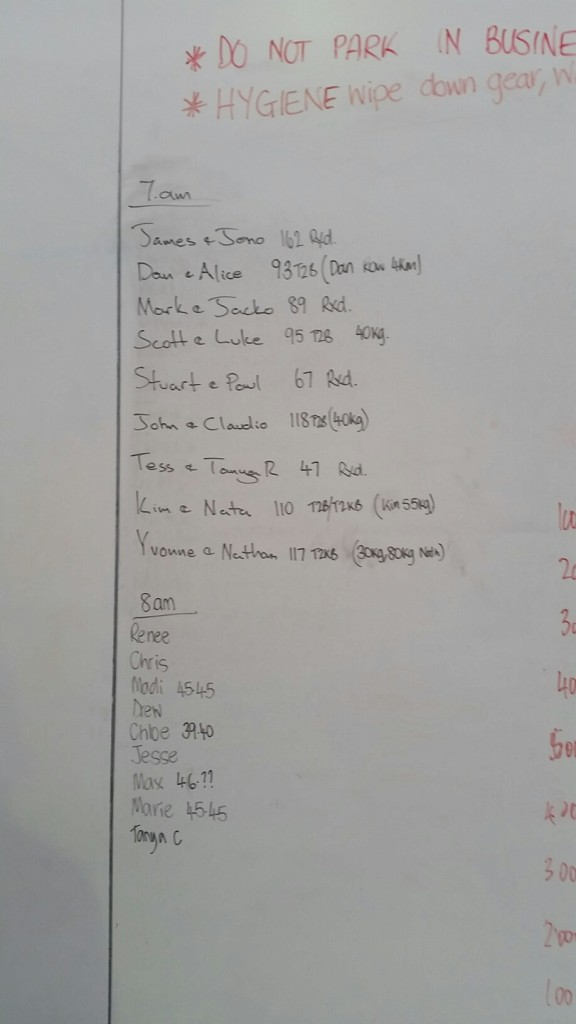 * DO NOT PARK IN BUSINE
* HYGIENE wipe down gear, wi
7.am
James & Jono 162 Rxd.
Dan & Alice 93 T2B (Dan row 4km)
Mark & Jacko 89 Rxd.
Scott & Luke 95 T2B 40kg.
Stuart & Paul 67 Rxd.
John & Claudio 118 T2B (40kg)
Tess & Tanya R 47 Rxd.
Kim & Nata 110 T2B/T2KB (Kim 55kg)
Yvonne & Nathan 117 T2KB (30kg, 80kg Nath)
8am
Renee
Chris
Madi 45.45
Drew
Chloe 39.40
Jesse
Max 46.??
Marie 45.45
Tanya C
100
20
30
40
50
300
200
100